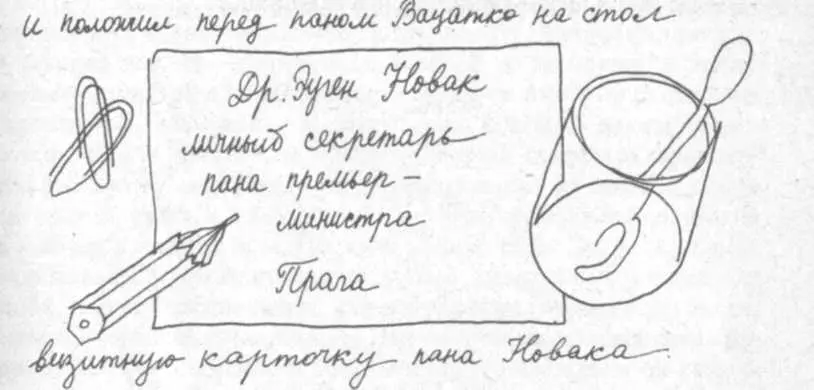 и положил перед паном Вацатко на стол
Др. Эуген Новак
личный секретарь
пана премьер-
министра
Прага
визитную карточку пана Новака.